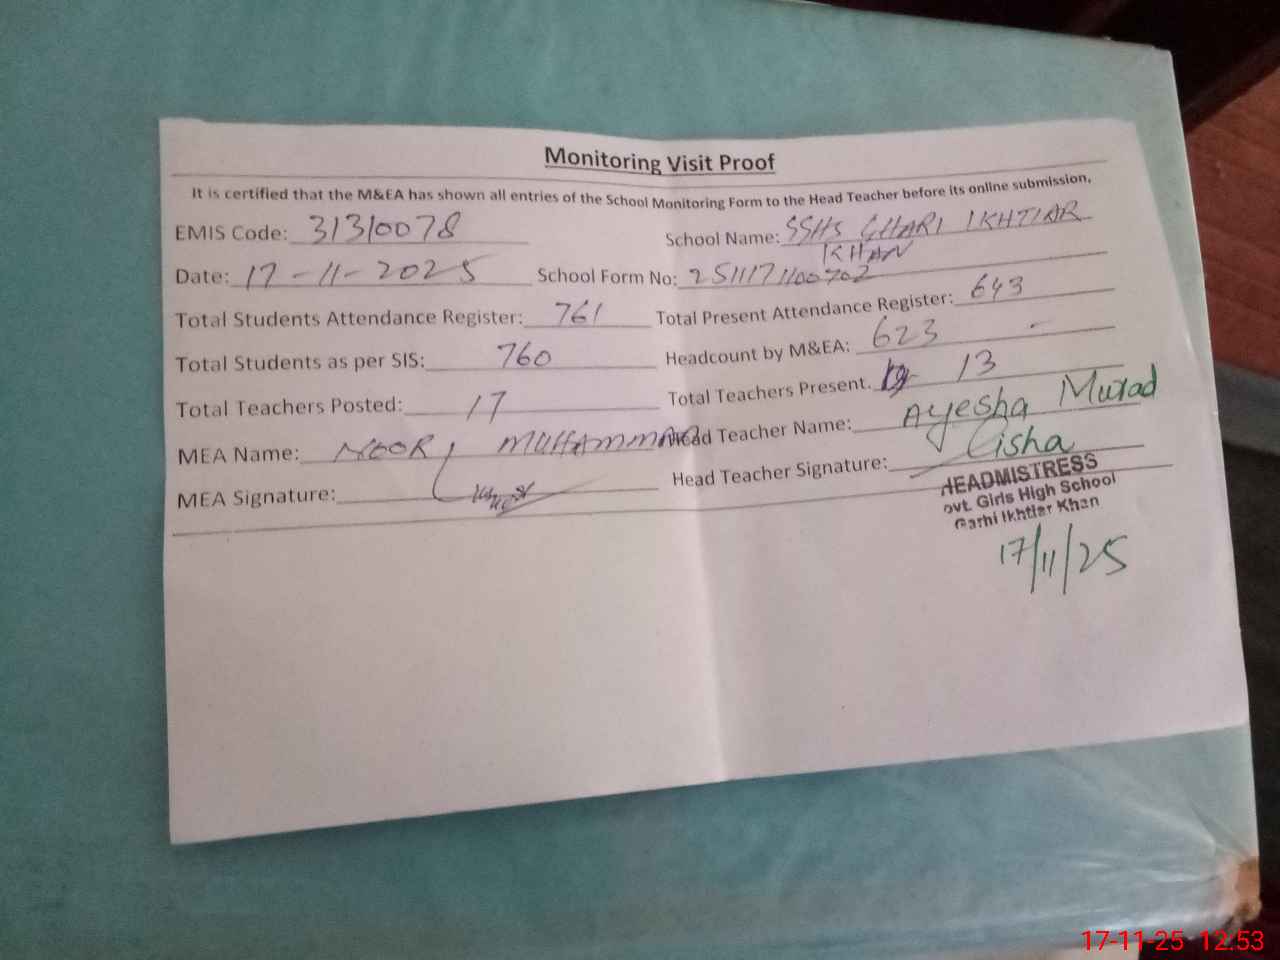 Monitoring Visit Proof
It is certified that the M&EA has shown all entries of the School Monitoring Form to the Head Teacher before its online submission,
EMIS Code: 31310078 School Name: GGHS GHARI IKHTIAR
KHAN
Date: 17-11-2025 School Form No: 2511171100702
Total Students Attendance Register: 761 Total Present Attendance Register: 643
Total Students as per SIS: 760 Headcount by M&EA: 623
Total Teachers Posted: 17 Total Teachers Present. 13
MEA Name: NOOR MUHAMMAD Head Teacher Name: Ayesha Murad
MEA Signature: Head Teacher Signature: Aisha
HEADMISTRESS
ovt. Girls High School
Garhi Ikhtiar Khan
17/11/25
17-11-25 12:53